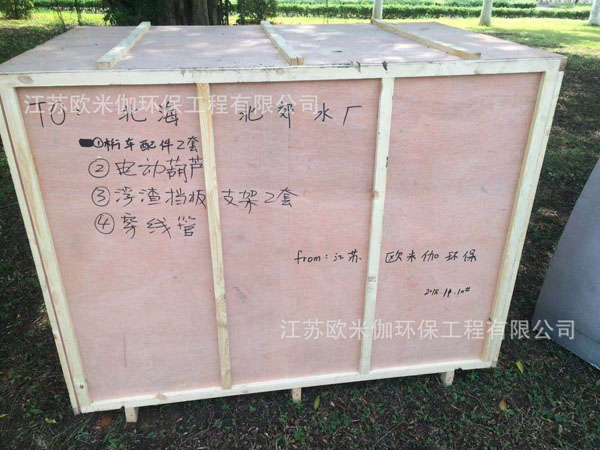 江苏欧米伽环保工程有限公司
TO: 北海 北郊水厂
①桁车配件2套
②电动葫芦
③浮渣挡板 支架2套
④穿线管
from: 江苏 欧米伽环保
江苏欧米伽环保工程有限公司